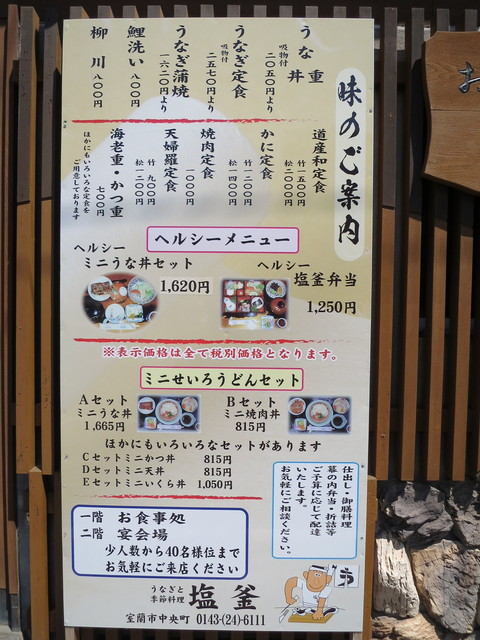 味のご案内
うな重
丼
吸物付
二〇五〇円より
うなぎ定食
吸物付
二五七〇円より
うなぎ蒲焼
一六二〇円より
鯉洗い
八〇〇円
柳川
八〇〇円
道産和定食
竹 一五〇〇円
松 二〇〇〇円
かに定食
竹 一二〇〇円
松 一四〇〇円
焼肉定食
一〇〇〇円
天婦羅定食
竹 九〇〇円
松 一二〇〇円
海老重・かつ重
七〇〇円
ほかにもいろいろな定食を
ご用意しております
ヘルシーメニュー
ヘルシー
ミニうな丼セット
1,620円
ヘルシー
塩釜弁当
1,250円
※表示価格は全て税別価格となります。
ミニせいろうどんセット
Aセット
ミニうな丼
1,665円
Bセット
ミニ焼肉丼
815円
ほかにもいろいろなセットがあります
Cセットミニかつ丼 815円
Dセットミニ天丼 815円
Eセットミニいくら丼 1,050円
仕出し・御膳料理
幕の内弁当・折詰等
ご予算に応じて配達
いたします。
お気軽にご相談ください。
一階 お食事処
二階 宴会場
少人数から40名様位まで
お気軽にご来店ください
うなぎと
季節料理
塩釜
室蘭市中央町 0143-(24)-6111
お